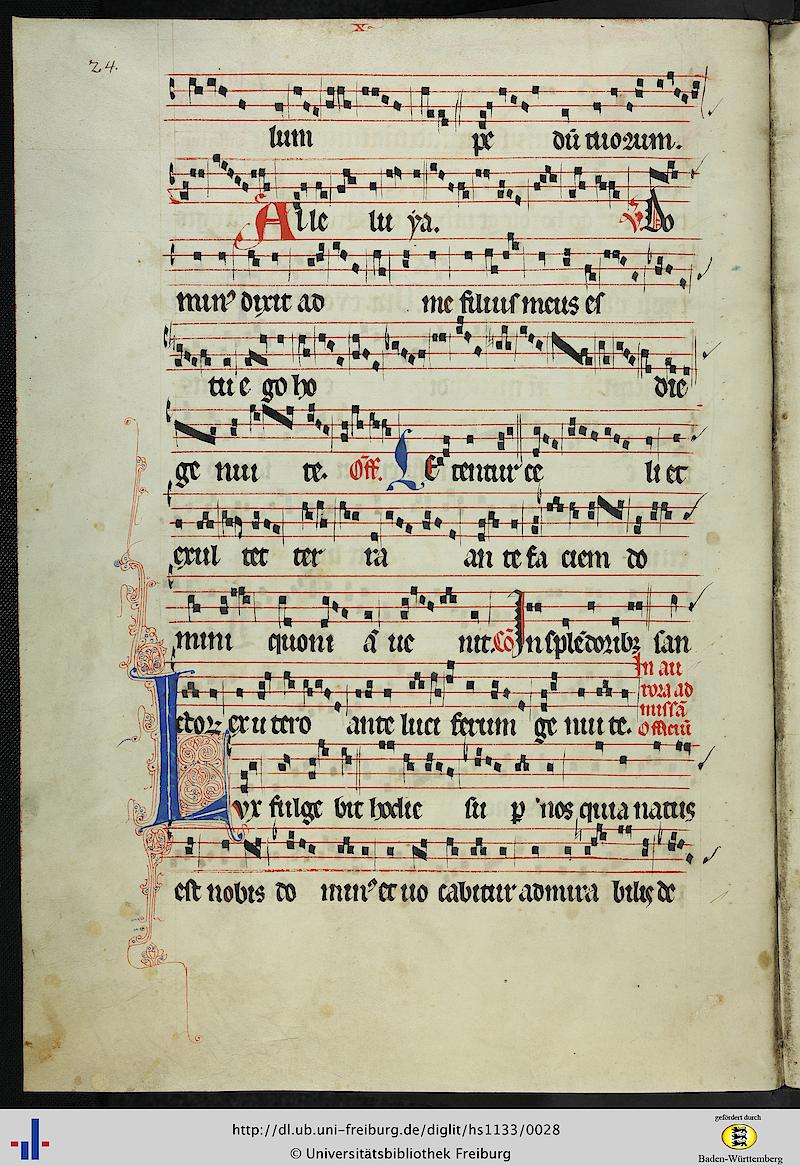 x
24.
lum pe dū tuoꝛum.
Alle lu ya. ℣ Do
minꝰ dixit ad me filius meus es
tu e go ho die
ge nui te. Off. Le tentur ce li et
exul tet ter ra an te fa ciem do
mini quoni ā ue nit. Cō In splēdoribꝫ san
In au
roꝛa ad
missā
Officiū
ctoꝝ ex u tero ante luci ferum ge nui te.
Lvx fulge bit hodie su p nos quia natus
est nobis do minꝰ et uo cabitur admira bilis de
http://dl.ub.uni-freiburg.de/diglit/hs1133/0028
© Universitätsbibliothek Freiburg
gefördert durch
Baden-Württemberg